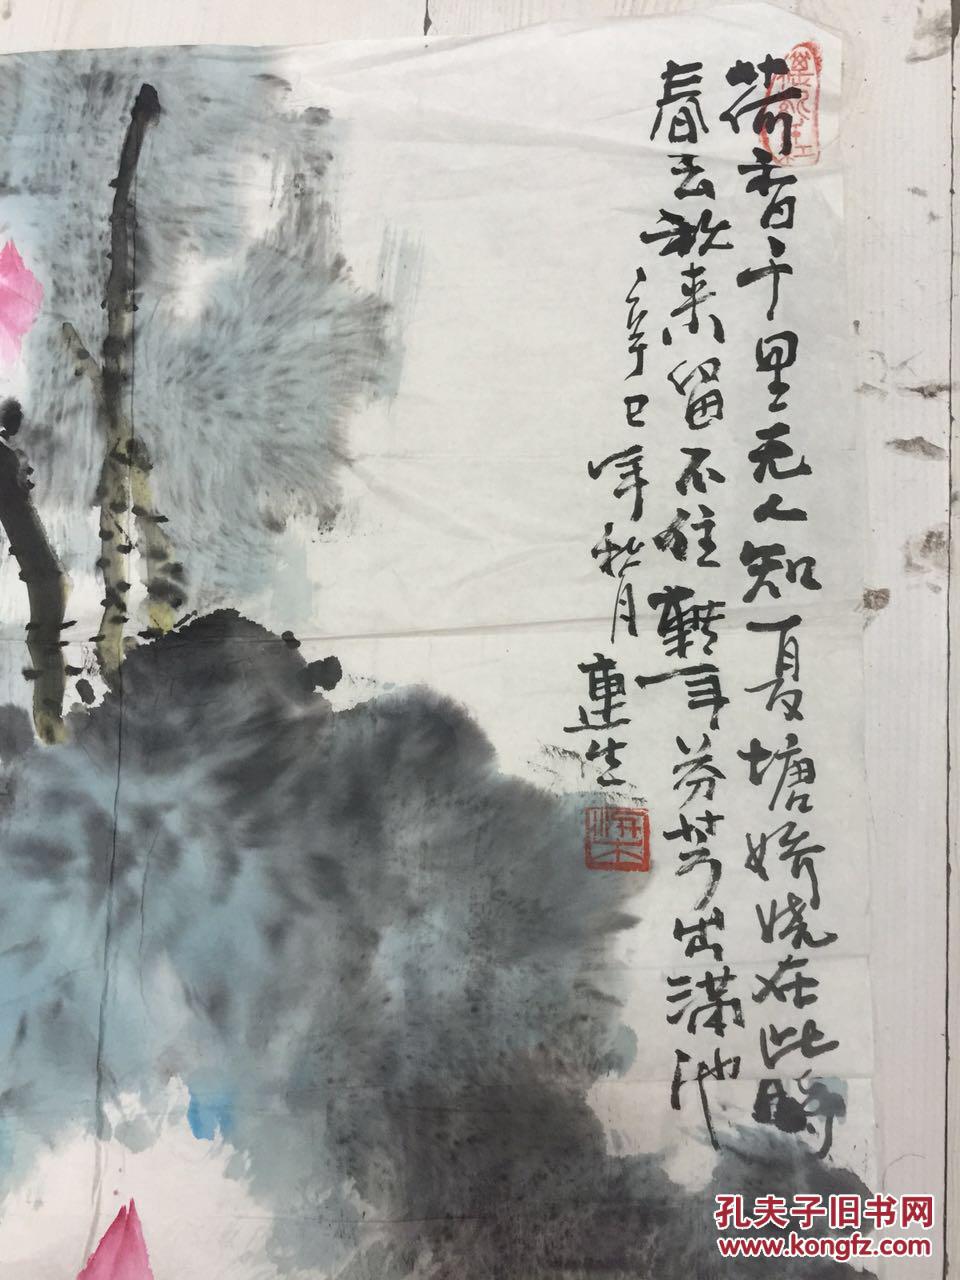 荷香千里无人知夏塘娇娆在此时
春去秋来留不住 年芬芳出满池
辛巳年秋月
连生
梁
孔夫子旧书网
www.kongfz.com